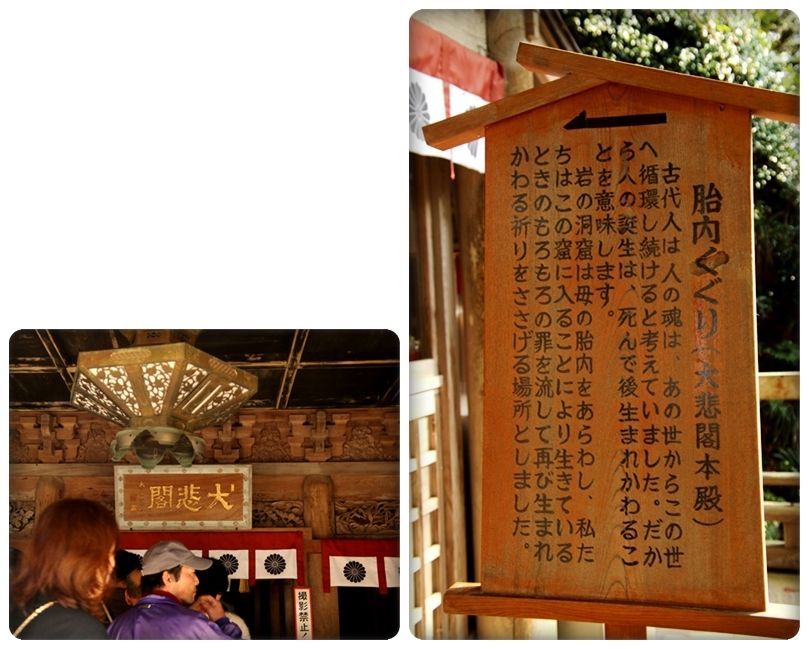 大悲閣
撮影禁止！
胎内くぐり（大悲閣本殿）
古代人は人の魂は、あの世からこの世
へ循環し続けると考えていました。だか
ら人の誕生は、死んで後生まれかわるこ
とを意味します。
岩の洞窟は母の胎内をあらわし、私た
ちはこの窟に入ることにより生きている
ときのもろもろの罪を流して再び生まれ
かわる祈りをささげる場所としました。